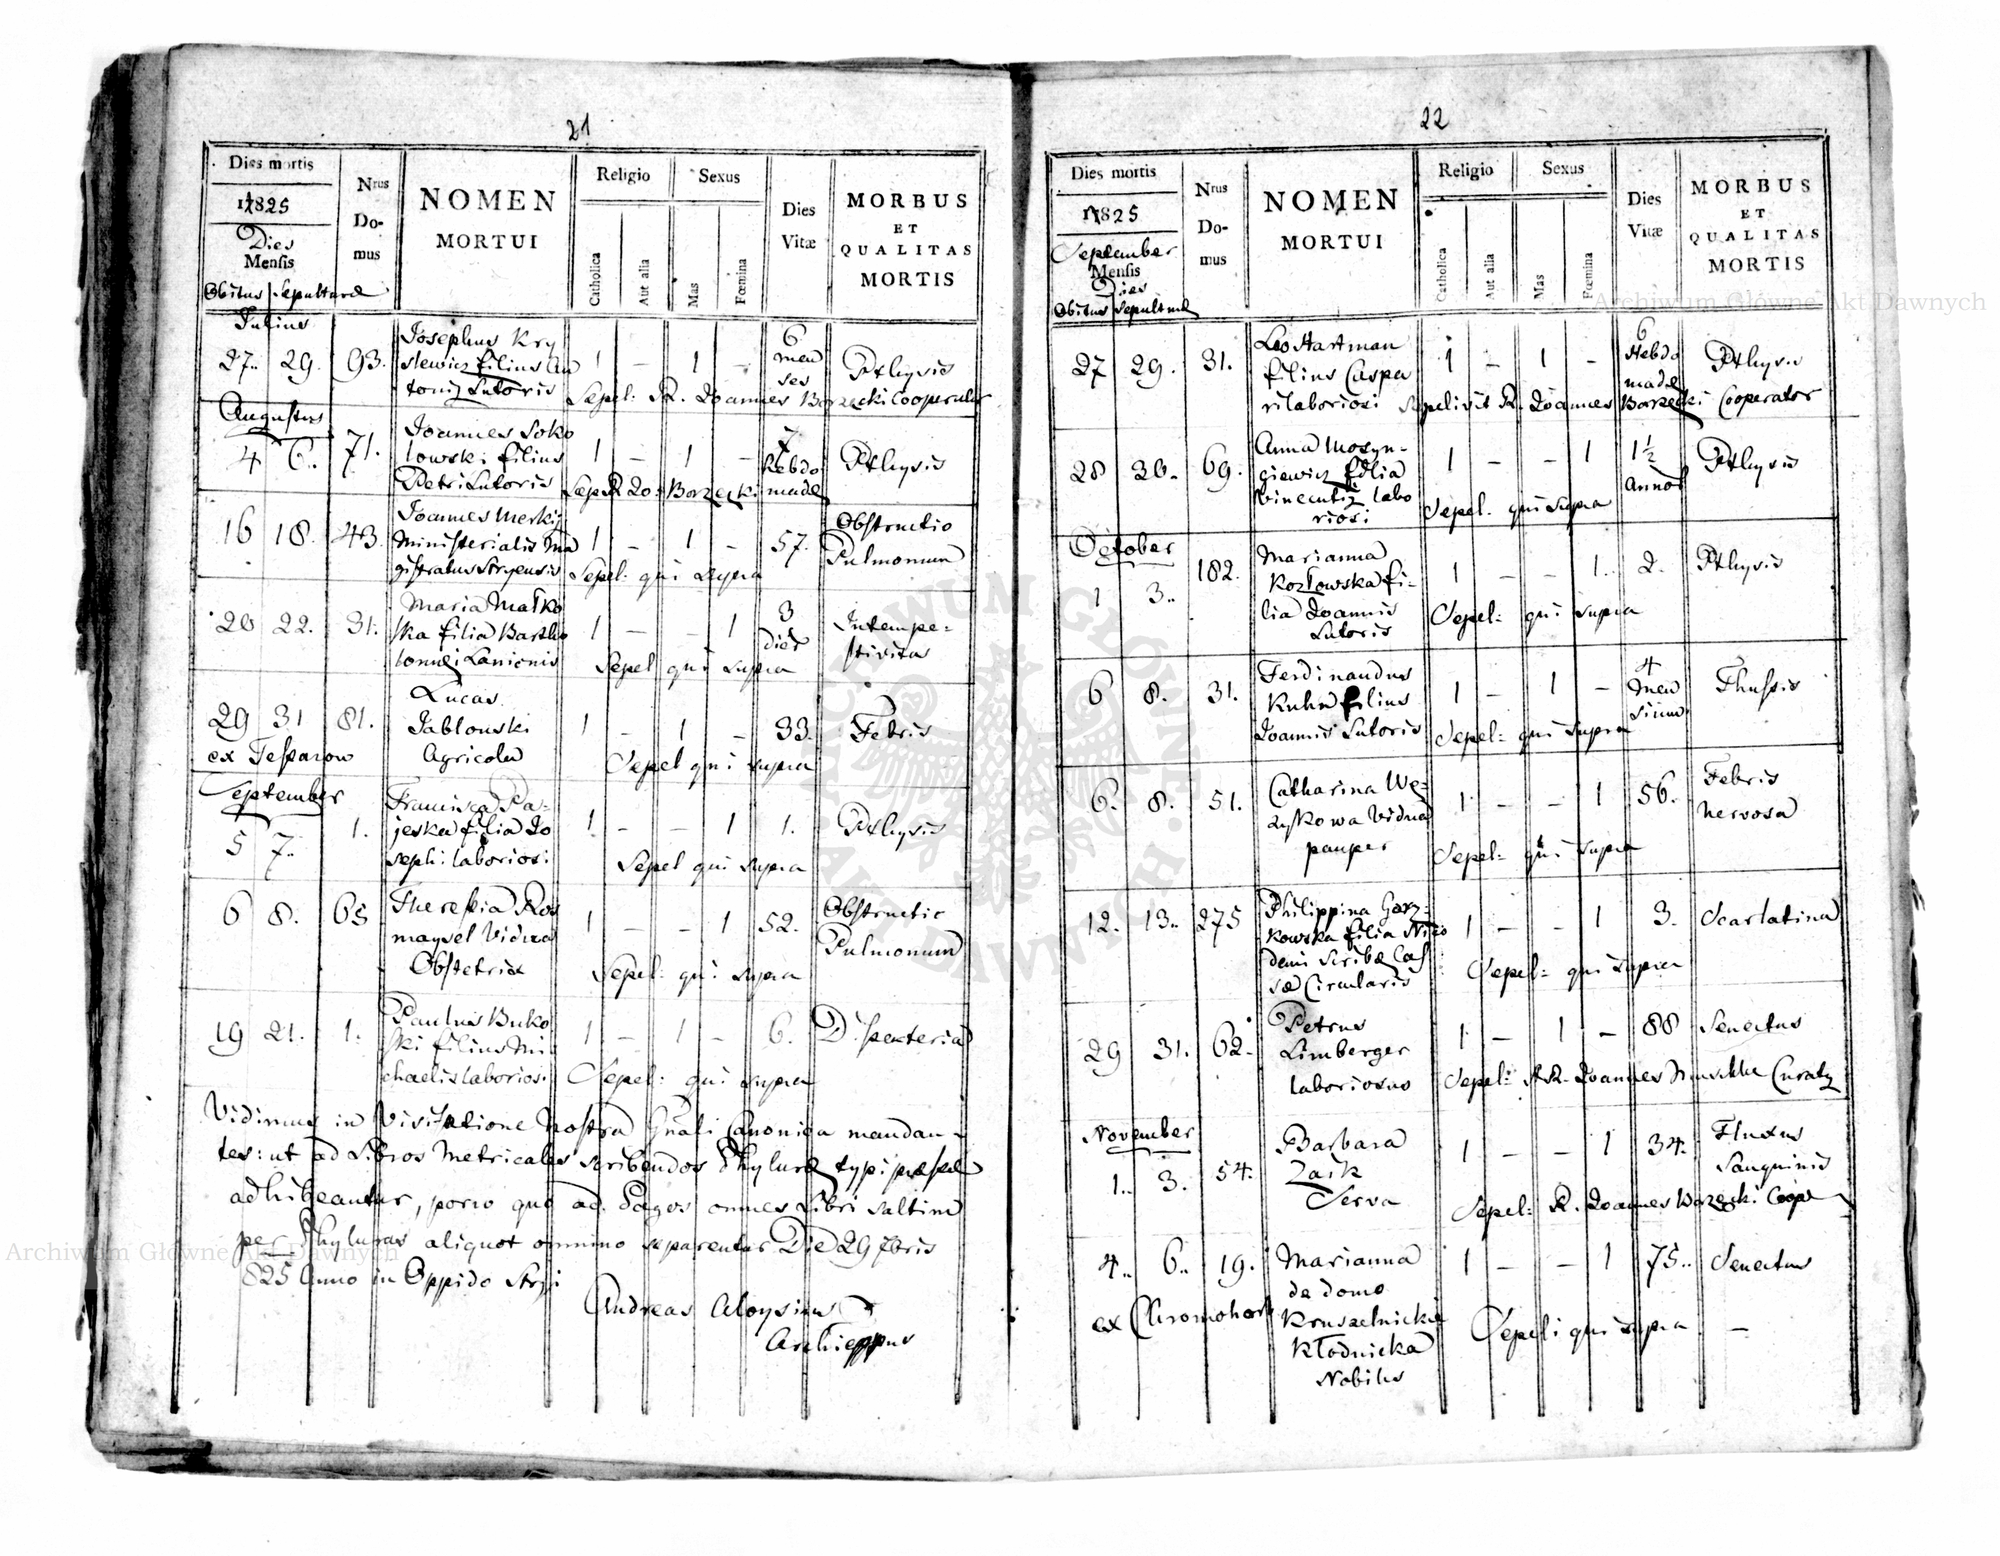 21
Dies mortis
1825
Dies
Mensis
Obitus Sepulturæ
Nrus
Do-
mus
NOMEN
MORTUI
Religio
Catholica
Aut alia
Sexus
Mas
Fœmina
Dies
Vitæ
MORBUS
ET
QUALITAS
MORTIS
Julius
27. 29. 93.
Josephus Kry
slewicz filius An
tonij Sutoris
1 – 1 –
6
men
ses
Pthysis
Sepel: R. Joannes Borzecki Cooperator
Augustus
4 6. 71.
Joannes Soko
lowski filius
Petri Sutoris
1 – 1 –
7
hebdo
madæ
Pthysis
Sepel R Jo: Borzecki
16 18. 43.
Joannes Merkij
Ministerialis Ma
gistratus Stryensis
1 – 1 –
57.
Obstructio
Pulmonum
Sepel: qui supra
20 22. 31.
Maria Małko
ska filia Bartho
lomæi Lanionis
1 – – 1
3
dies
Intempe-
stivitas
Sepel qui supra
29 31 81.
ex
Lucas
Jablonski
Agricola
1 – 1 –
33.
Febris
Sepel qui supra
September
5 7. 1.
Francisca Pa-
jeska filia Jo
sephi laboriosi
1 – – 1
1.
Pthysis
Sepel qui supra
6 8. 65
Theressia Ros
maysel Vidua
Obstetrix
1 – – 1
52.
Obstructio
Pulmonum
Sepel: qui supra
19 21. 1.
Paulus Buko
ski filius Mi
chaelis laboriosi
1 – 1 –
6.
Disenteria
Sepel: qui supra
Vidimus in Visitatione Nostra Gnāli Canonica mandan-
tes: ut ad Libros Metricales scribendos Phyluræ typi
adhibeantur, porro quo ad Pagos omnes Libri saltim
per Phyluras aliquot omnino separentur Die 29 7bris
825 Anno in Oppido Stryi
Andreas Aloysius
Archieppus
22
Dies mortis
1825
September
Mensis
Dies
Obitus Sepulturæ
Nrus
Do-
mus
NOMEN
MORTUI
Religio
Catholica
Aut alia
Sexus
Mas
Fœmina
Dies
Vitæ
MORBUS
ET
QUALITAS
MORTIS
27 29. 31.
Leo Hartman
filius Caspa
ri laboriosi
1 – 1 –
6
Hebdo
madæ
Pthysis
Sepelivit R. Joannes Borzecki Cooperator
28 30. 69.
Anna Mosyn-
giewicz filia
Vincentij labo
riosi
1 – – 1
1½
Annos
Pthysis
Sepel. qui supra
October
1 3. 182.
Marianna
Kozłowska fi-
lia Joannis
Sutoris
1 – – 1.
2.
Pthysis
Sepel: qui supra
6 8. 31.
Ferdinandus
Kuhn filius
Joannis Sutoris
1 – 1 –
4
men
sium
Thussis
Sepel: qui supra
6. 8. 51.
Catharina We-
zykowa Vidua
pauper
1 – – 1
56.
Febris
Nervosa
Sepel: qui supra
12. 13. 275
Philippina Gorz-
kowska filia Nico
demi Scribæ Cas
sæ Circularis
1 – – 1
3.
Scarlatina
Sepel: qui supra
29 31. 62.
Petrus
Limberger
laboriosus
1 – 1 –
88
Senectus
Sepel: Joannes
November
1. 3. 54.
Barbara
Zaik
Serva
1 – – 1
34.
Fluxus
Sanguinis
Sepel: R. Joannes Borzecki Coope
4. 6. 19.
ex
Marianna
de domo
Kruszelnickie
Kłodnicka
Nobilis
1 – – 1
75.
Senectus
Sepel: qui supra –
Archiwum Główne Akt Dawnych
Archiwum Główne Akt Dawnych
ARCHIWUM GŁÓWNE AKT DAWNYCH